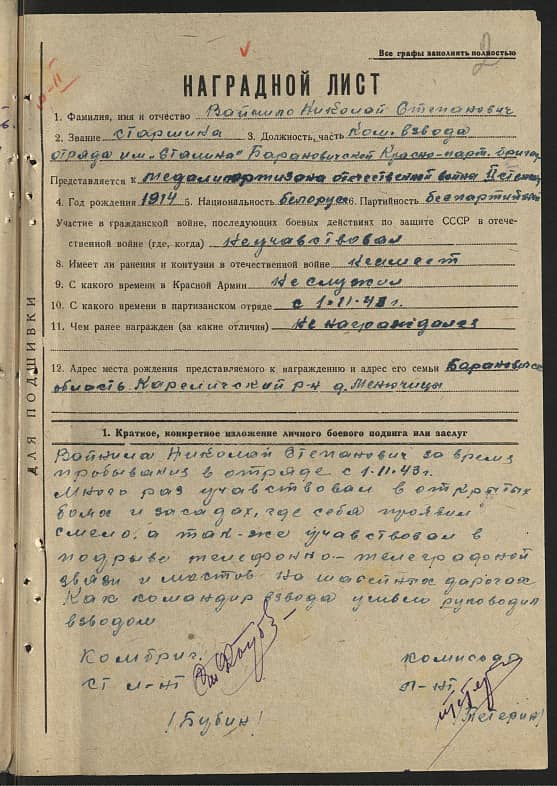 Все графы заполнять полностью
2
НАГРАДНОЙ ЛИСТ
1. Фамилия, имя и отчество Войкило Николай Степанович
2. Звание старшина 3. Должность, часть Ком. взвода
отряда им „Сталина" Барановичской Красно-парт. бригад
Представляется к медали партизана отечественной войны II степени
4. Год рождения 1914 5. Национальность белорус 6. Партийность беспартийный
Участие в гражданской войне, последующих боевых действиях по защите СССР в отече-
ственной войне (где, когда) Не учавствовал
8. Имеет ли ранения и контузии в отечественной войне Не имеет
9. С какого времени в Красной Армии Не служил
10. С какого времени в партизанском отряде с 1-11-43 г.
11. Чем ранее награжден (за какие отличия) Не награждался
12. Адрес места рождения представляемого к награждению и адрес его семьи Барановичск
область Кареличский р-н д. Менючицы
ДЛЯ ПОДШИВКИ
1. Краткое, конкретное изложение личного боевого подвига или заслуг
Николай Степанович за время
пробывания в отряде с 1-11-43 г.
Много раз учавствовал в открытых
боях и засадах, где себя проявил
смело, а так-же учавствовал в
подрыве телефонно-телеграфной
связи и мостов на шосейных дорогах
Как командир взвода умело руководил
взводом
Комбриг.
ст л-нт
(Бубин)
комиссар
л-нт
(Тетерин)